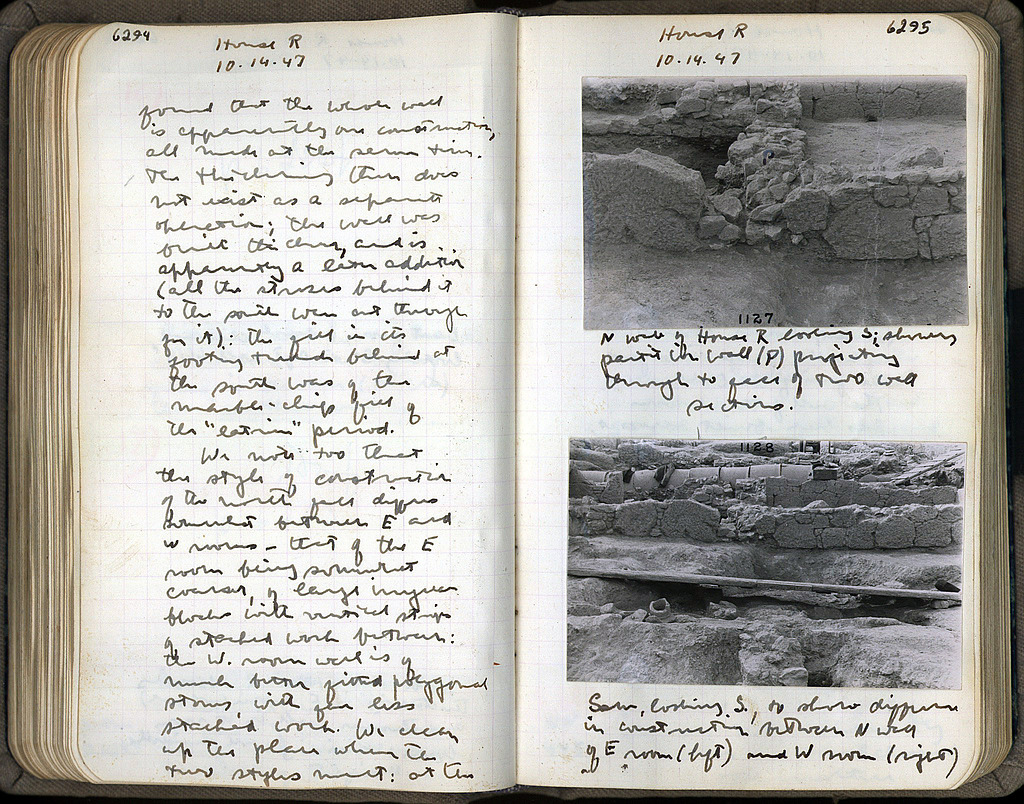 6294
House R
10.14.47
found that the whole wall
is apparently one construction,
all made at the same time.
The thickening then does
not exist as a separate
operation; the wall was
built thicker, and is
apparently a later addition
(all the strosis behind it
to the south were cut through
for it): the fill in its
footing trench behind at
the south was of the
marble-chip fill of
the "latrine" period.
We note too that
the style of construction
of the north face differs
somewhat between E and
W rooms - that of the E
room being somewhat
coarser, of large irregular
blocks with vertical strips
of stacked work between:
the W. room wall is of
much better fitted polygonal
stones with far less
stacked work. We clean
up the place where the
two styles meet: at the
6295
House R
10.14.47
1127
N wall of House R looking S; showing
partition wall (P) projecting
through to face of two wall
sections.
1128
Same, looking S, to show difference
in construction between N wall
of E room (left) and W room (right)